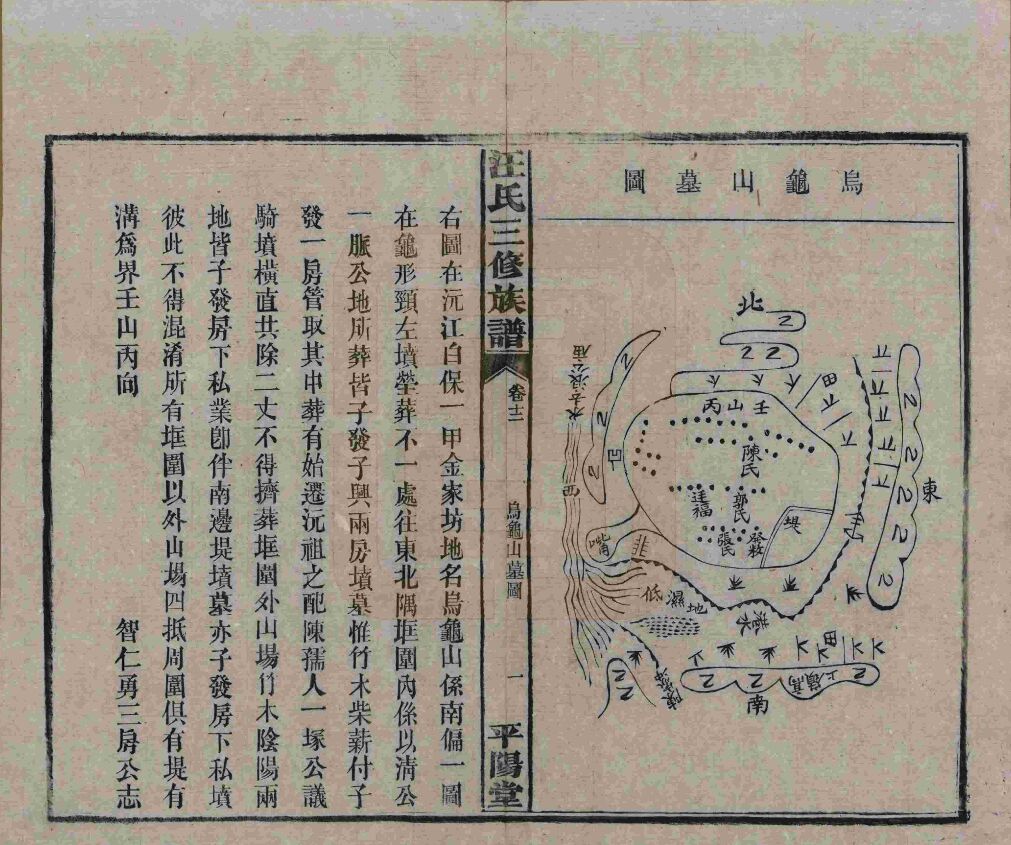 烏龜山墓圖
北
東
南
西
壬山丙
陳氏
郭氏
張氏
堤
嘴
凹
田
低濕地
田
汪氏三修族譜
卷十二
烏龜山墓圖
一
平陽堂
右圖在沅江白保一甲金家坊地名烏龜山係南偏一圖
在龜形頸左墳塋葬不一處往東北隅坵圍內係以淸公
一脈公地所葬皆子發子興兩房墳墓惟竹木柴薪付子
發一房管取其中葬有始遷沅祖之配陳孺人一塚公議
騎墳橫直共除二丈不得擠葬坵圍外山場竹木陰陽兩
地皆子發房下私業卽件南邊堤墳墓亦子發房下私墳
彼此不得混淆所有坵圍以外山場四抵周圍俱有堤有
溝爲界壬山丙向
智仁勇三房公志